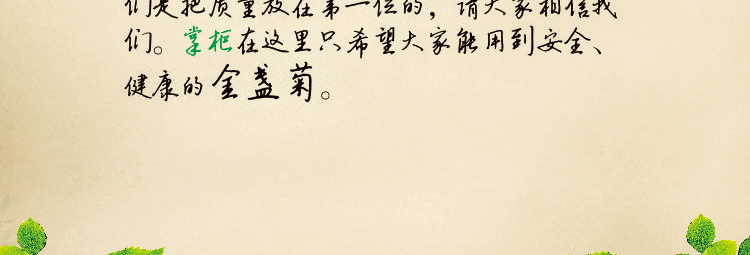 们是把质量放在第一位的，请大家相信我
们。掌柜在这里只希望大家能用到安全、
健康的金盏菊。